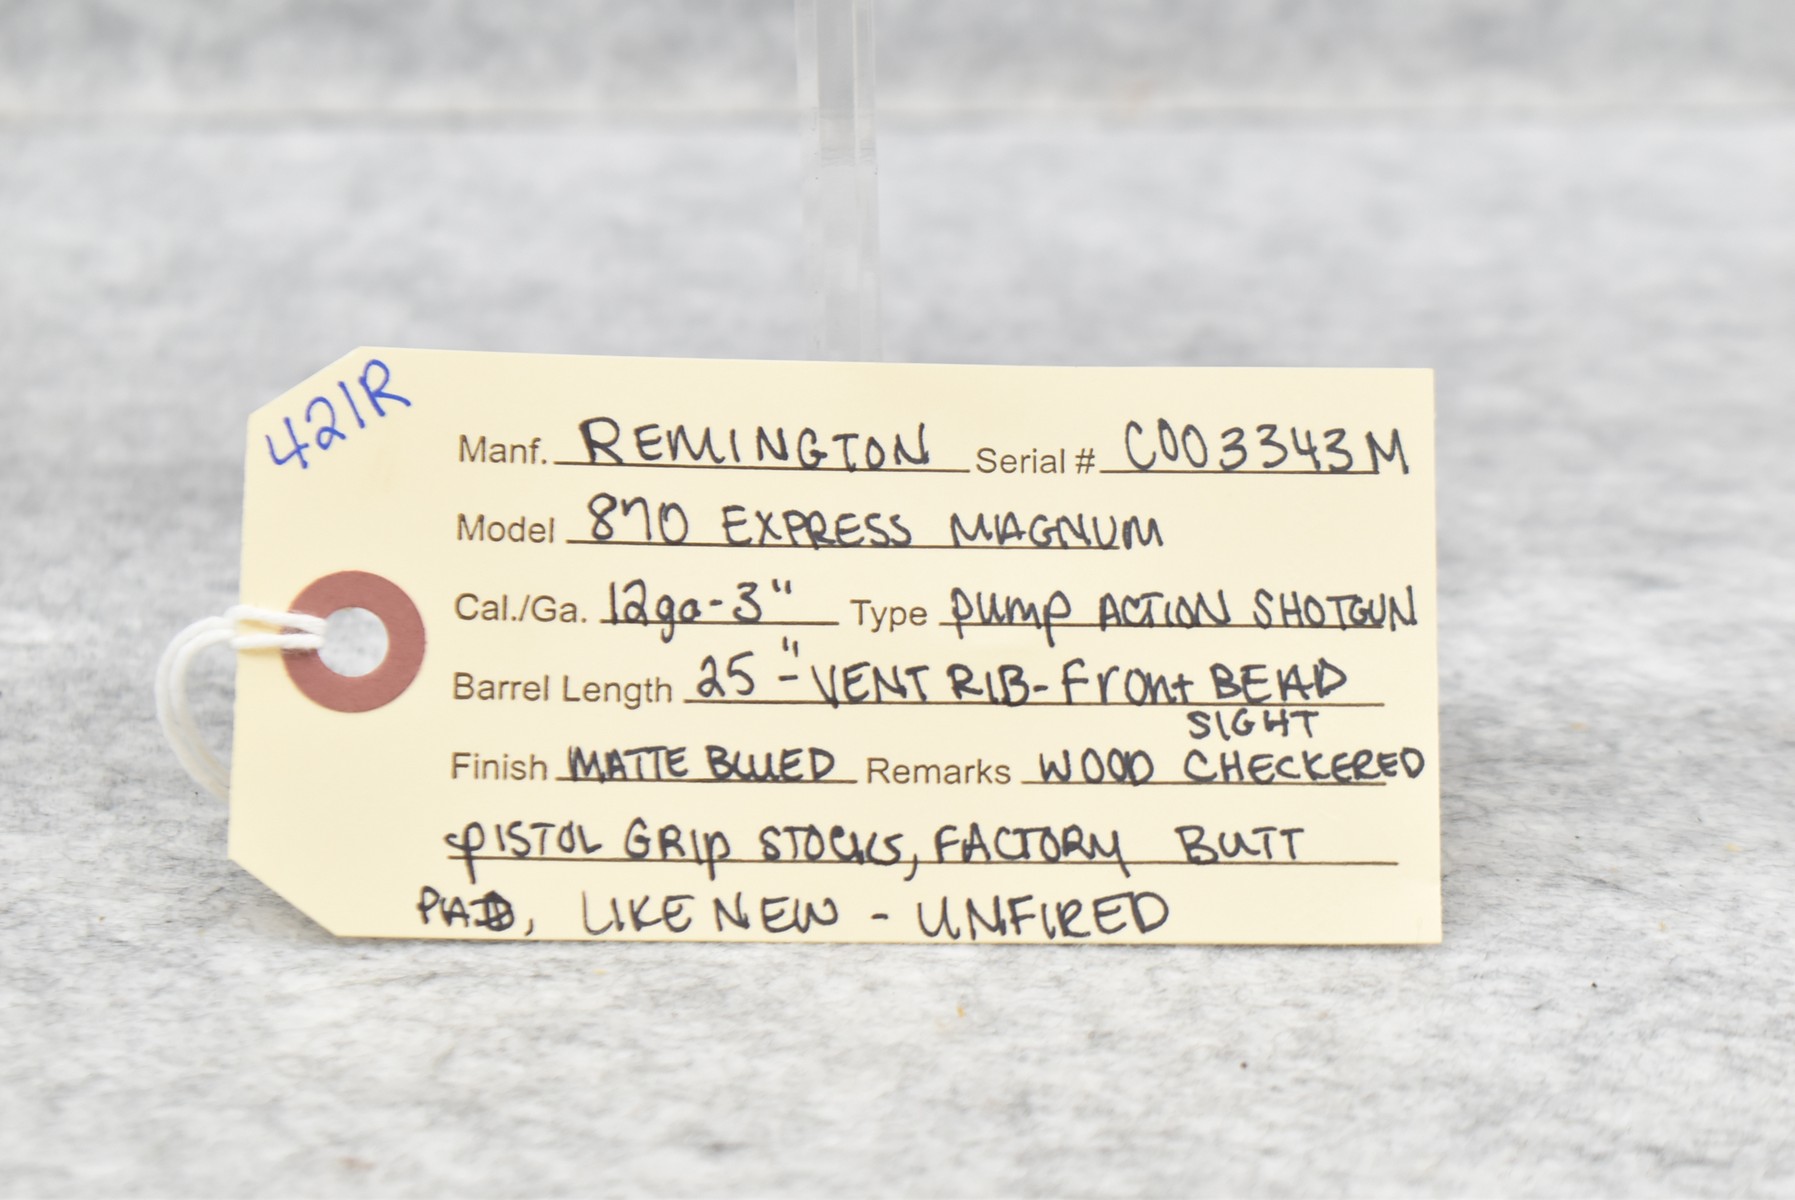 421R
Manf. REMINGTON Serial # C003343M
Model 870 EXPRESS MAGNUM
Cal./Ga. 12ga-3" Type PUMP ACTION SHOTGUN
Barrel Length 25"-VENT RIB-Front BEAD
SIGHT
Finish MATTE BLUED Remarks WOOD CHECKERED
PISTOL GRIP STOCKS, FACTORY BUTT
PAD, LIKE NEW - UNFIRED